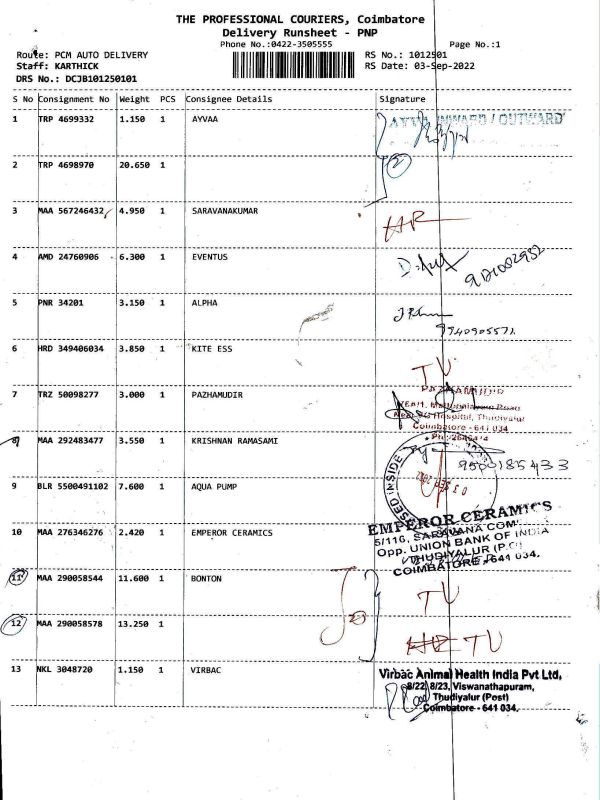 THE PROFESSIONAL COURIERS, Coimbatore
Delivery Runsheet - PNP
Phone No.:0422-3505555
Page No.:1
Route: PCM AUTO DELIVERY
RS No.: 1012501
Staff: KARTHICK
RS Date: 03-Sep-2022
DRS No.: DCJB101250101
S No Consignment No Weight PCS Consignee Details Signature
1 TRP 4699332 1.150 1 AYVAA
AYVAA INWARD / OUTWARD
2 TRP 4698970 20.650 1
2
3 MAA 567246432 4.950 1 SARAVANAKUMAR
4 AMD 24760906 6.300 1 EVENTUS
5 PNR 34201 3.150 1 ALPHA
9940905571
6 HRD 349406034 3.850 1 KITE ESS
TV
7 TRZ 50098277 3.000 1 PAZHAMUDIR
PAZHAMUDIR
Hospital, Thudiyalur
Coimbatore - 641 034
8 MAA 292483477 3.550 1 KRISHNAN RAMASAMI
9500185433
9 BLR 5500491102 7.600 1 AQUA PUMP
03 SEP 2022
10 MAA 276346276 2.420 1 EMPEROR CERAMICS
EMPEROR CERAMICS
5/116, SARAVANA COM
Opp. UNION BANK OF INDIA
THUDIYALUR (P.O)
COIMBATORE - 641 034.
11 MAA 290058544 11.600 1 BONTON
TV
12 MAA 290058578 13.250 1
TV
13 NKL 3048720 1.150 1 VIRBAC
Virbac Animal Health India Pvt Ltd,
8/22, 8/23, Viswanathapuram,
Thudiyalur (Post)
Coimbatore - 641 034.